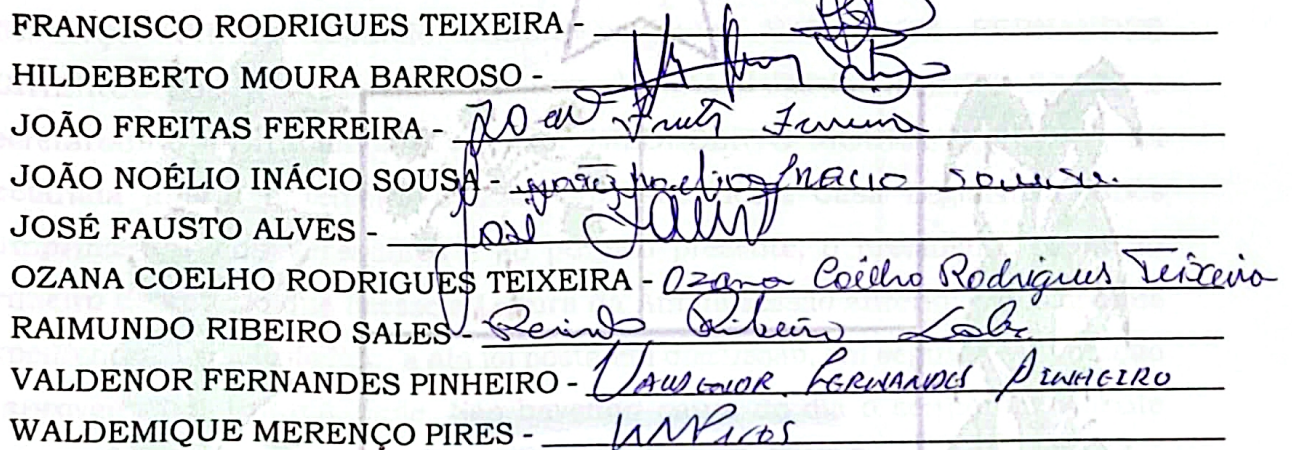 FRANCISCO RODRIGUES TEIXEIRA -
HILDEBERTO MOURA BARROSO -
JOÃO FREITAS FERREIRA - João
JOÃO NOÉLIO INÁCIO SOUSA - Inácio Sousa.
JOSÉ FAUSTO ALVES - José
OZANA COELHO RODRIGUES TEIXEIRA - Ozana Coelho Rodrigues Teixeira
RAIMUNDO RIBEIRO SALES - Ribeiro
VALDENOR FERNANDES PINHEIRO - VALDENOR FERNANDES PINHEIRO
WALDEMIQUE MERENÇO PIRES - WMPires